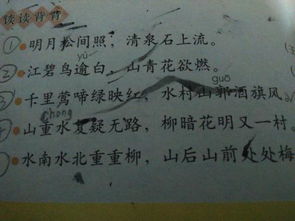 读读背背
①明月松间照，清泉石上流。
yú
②江碧鸟逾白，山青花欲燃。
guō
③千里莺啼绿映红，水村山郭酒旗风
chong
④山重水复疑无路，柳暗花明又一村
水南水北重重柳，山后山前处处梅